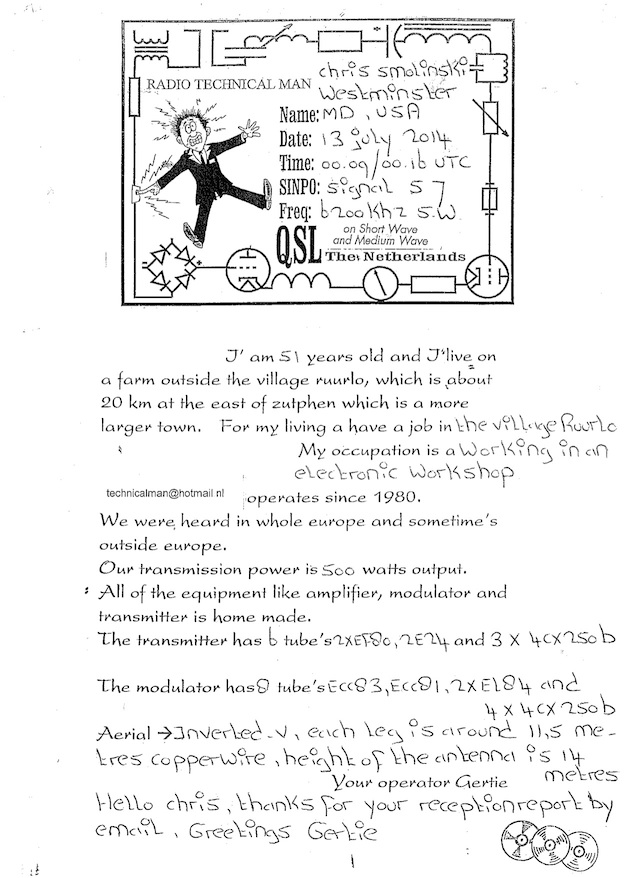 RADIO TECHNICAL MAN
chris smolinski
Westminster
Name: MD, USA
Date: 13 july 2014
Time: 00.09/00.16 UTC
SINPO: signal S 7
Freq: 6200 Khz S.W.
on Short Wave
and Medium Wave
QSL The Netherlands
I' am 51 years old and I' live on
a farm outside the village ruurlo, which is about
20 km at the east of zutphen which is a more
larger town. For my living a have a job in the village Ruurlo
My occupation is a working in an
electronic workshop
technicalman@hotmail.nl operates since 1980.
We were heard in whole europe and sometime's
outside europe.
Our transmission power is 500 watts output.
All of the equipment like amplifier, modulator and
transmitter is home made.
The transmitter has 6 tube's 2XEF80, 2E24 and 3 X 4CX250b
The modulator has 8 tube's Ecc83, Ecc81, 2XEL84 and
4 X 4CX250b
Aerial → Inverted-V, each leg is around 11,5 me-
tres copperwire, height of the antenna is 14
metres
Your operator Gertie
Hello chris, thanks for your reception report by
email, Greetings Gertie